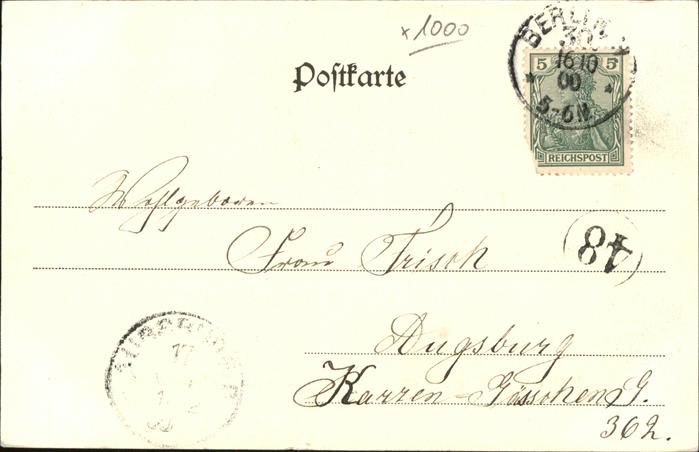 x1000
BERLIN
30
16 10
00
5-6N.
5 5
REICHSPOST
Postkarte
Wohlgeboren
Frau Frisch
48
Augsburg
Karren-Gässchen G.
362.
AUGSBURG
17